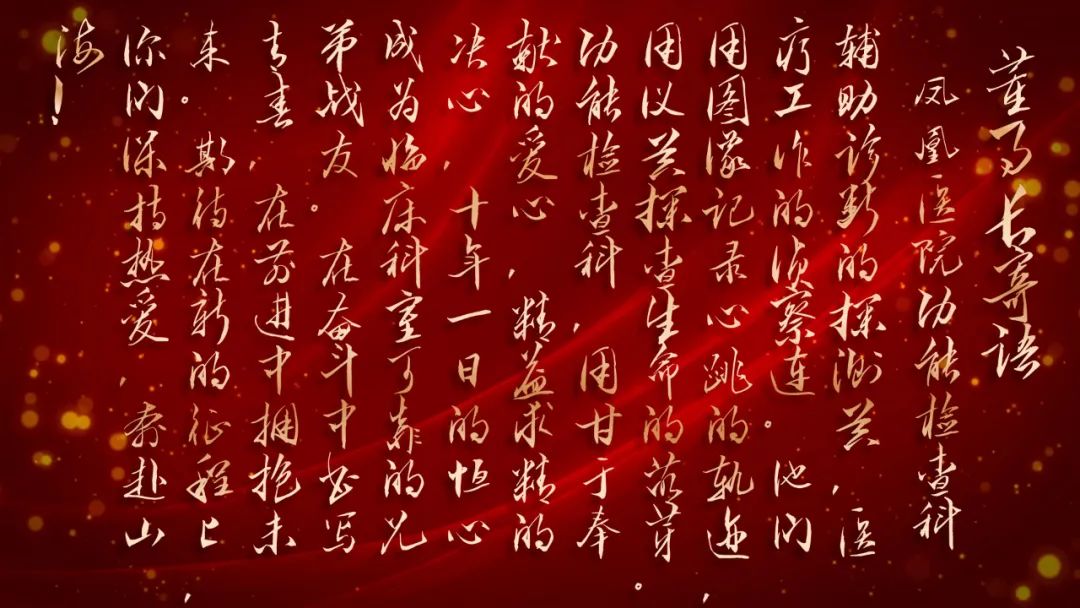 董事长寄语
凤凰医院功能检查科
辅助诊断的探测器，医
疗工作的侦察连。他们
用图像记录心跳的轨迹，
用仪器探查生命的萌芽。
功能检查科，用甘于奉
献的爱心，精益求精的
决心，十年一日的恒心
成为临床科室可靠的兄
弟战友。在奋斗中书写
青春，在前进中拥抱未
来。期待在新的征程上，
你们保持热爱，奔赴山
海！